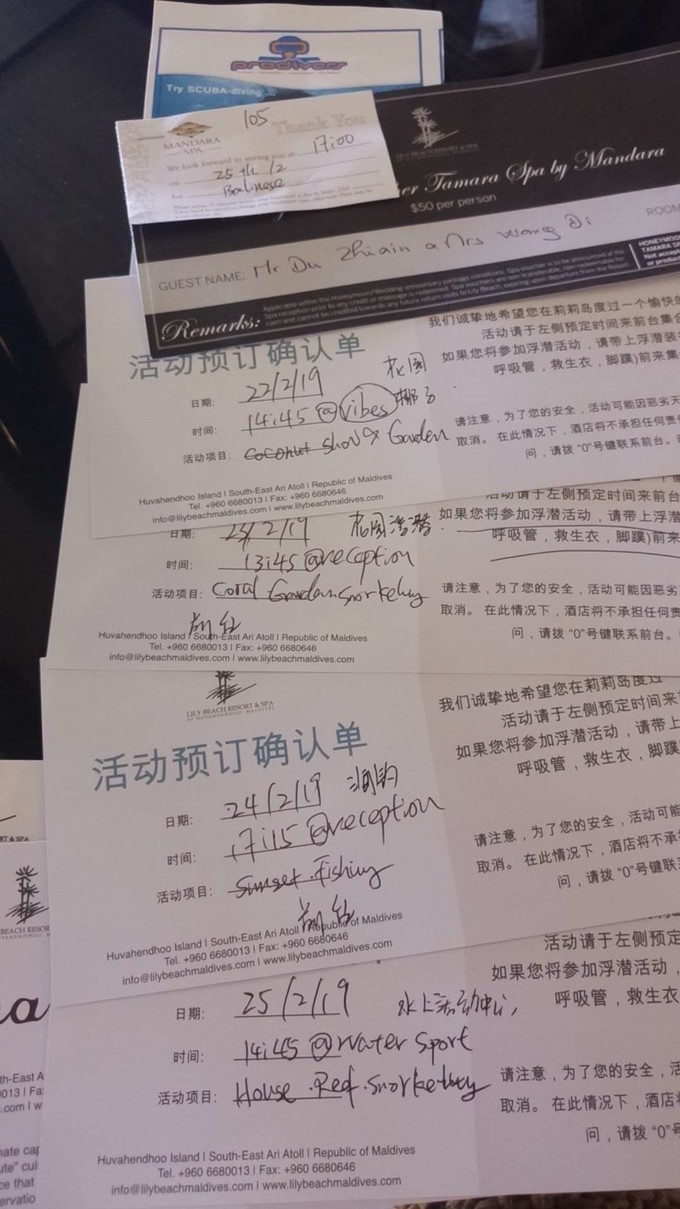 prodivers
Try SCUBA diving
105
Thank You
MANDARA
SPA
We look forward to seeing you at 17:00
on 25th /2
For Balinese
LILY BEACH RESORT & SPA
Tamara Spa by Mandara
$50 per person
GUEST NAME: Mr Du Zhiain & Mrs Wang Di
ROOM
Remarks:
活动预订确认单
日期: 22/2/19 花园
时间: 14:45 @ Vibes 椰子
活动项目: Coconut Show & Garden
Huvahendhoo Island I South-East Ari Atoll I Republic of Maldives
Tel. +960 6680013 I Fax: +960 6680646
info@lilybeachmaldives.com I www.lilybeachmaldives.com
我们诚挚地希望您在莉莉岛度过一个愉快的
活动请于左侧预定时间来前台集合
如果您将参加浮潜活动，请带上浮潜装
呼吸管，救生衣，脚蹼)前来集
请注意，为了您的安全，活动可能因恶劣天
取消。 在此情况下，酒店将不承担任何责任
问，请拨 “0”号键联系前台。
日期: 23/2/19 花园浮潜
时间: 13:45 @reception
活动项目: Coral Garden snorkeling
前台
Huvahendhoo Island I South-East Ari Atoll I Republic of Maldives
Tel. +960 6680013 I Fax: +960 6680646
info@lilybeachmaldives.com I www.lilybeachmaldives.com
活动请于左侧预定时间来前台
如果您将参加浮潜活动，请带上浮潜
呼吸管，救生衣，脚蹼)前来
请注意，为了您的安全，活动可能因恶劣
取消。 在此情况下，酒店将不承担任何责
问，请拨 “0”号键联系前台。
LILY BEACH RESORT & SPA
AT HUVAHENDHOO, MALDIVES
活动预订确认单
日期: 24/2/19
时间: 17:15 @reception
活动项目: Sunset Fishing
前台
Huvahendhoo Island I South-East Ari Atoll I Republic of Maldives
Tel. +960 6680013 I Fax: +960 6680646
info@lilybeachmaldives.com I www.lilybeachmaldives.com
我们诚挚地希望您在莉莉岛度过
活动请于左侧预定时间来
如果您将参加浮潜活动，请带上
呼吸管，救生衣，脚蹼
请注意，为了您的安全，活动可能
取消。 在此情况下，酒店将不承
问，请拨 “0”号键联系
日期: 25/2/19 水上活动中心
时间: 14:45 @Water Sport
活动项目: House Reef snorkeling
Huvahendhoo Island I South-East Ari Atoll I Republic of Maldives
Tel. +960 6680013 I Fax: +960 6680646
info@lilybeachmaldives.com I www.lilybeachmaldives.com
活动请于左侧预定
如果您将参加浮潜活动，
呼吸管，救生衣
请注意，为了您的安全，活
取消。 在此情况下，酒店
问，请拨 “0”号